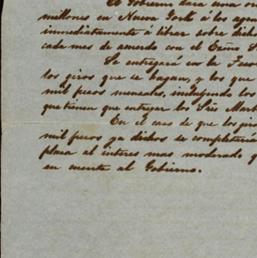 El Gobierno dara una or
millones en Nueva York á los agen
inmediatamente á librar sobre dicho
cada mes de acuerdo con el Exmo S
Se entregará en la Teso
los giros que se hagan, y los que
mil pesos mensuales, incluyendo los
que tienen que entregar los Sres Mart
En el caso de que los giro
mil pesos ya dichos se completaria
plaza al interes mas moderado q
en cuenta al Gobierno.